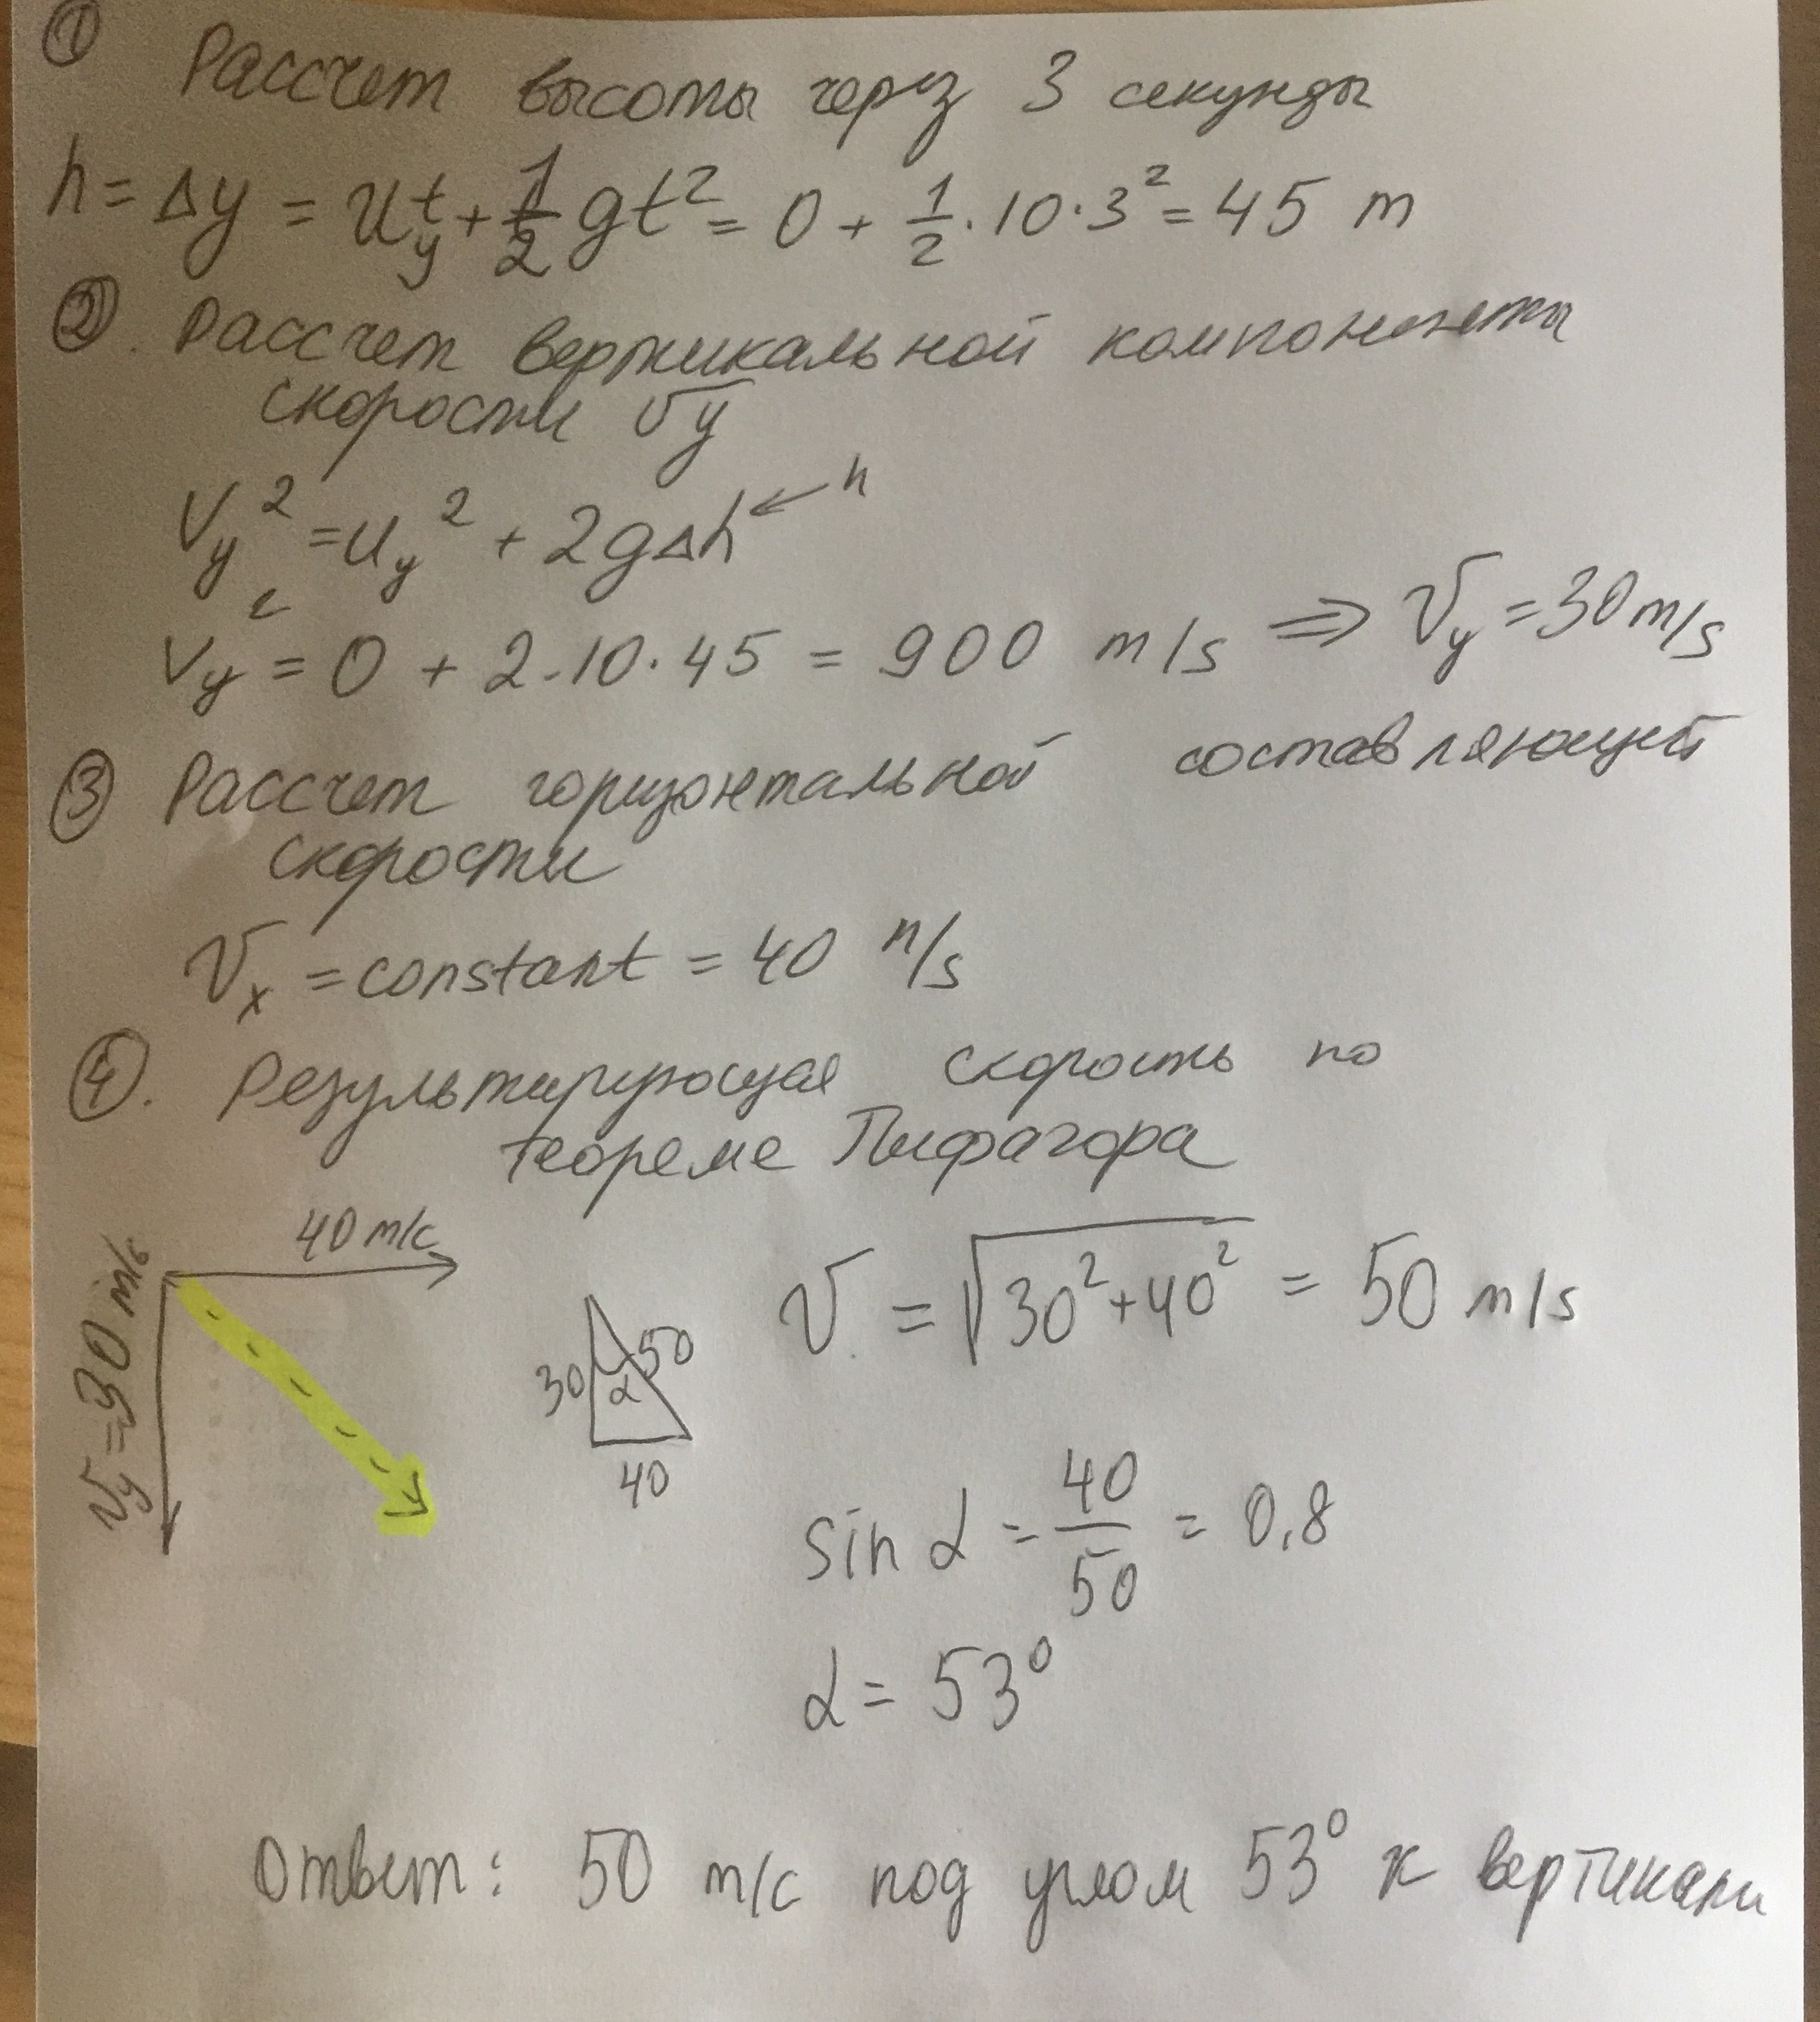 ① Рассчет высоты через 3 секунды
h = Δy = u_y t + 1/2 gt² = 0 + 1/2 · 10 · 3² = 45 m
②. Рассчет вертикальной компоненты
скорости v_y
V_y² = u_y² + 2gΔh ← h
V_y² = 0 + 2 · 10 · 45 = 900 m/s ⇒ V_y = 30 m/s
③ Рассчет горизонтальной составляющей
скорости
V_x = constant = 40 m/s
④. Результирующая скорость по
теореме Пифагора
40 m/c
V_y = 30 m/c
30 50 α
40
V = √30² + 40² = 50 m/s
sin α = 40/50 = 0,8
α = 53°
Ответ: 50 m/c под углом 53° к вертикали